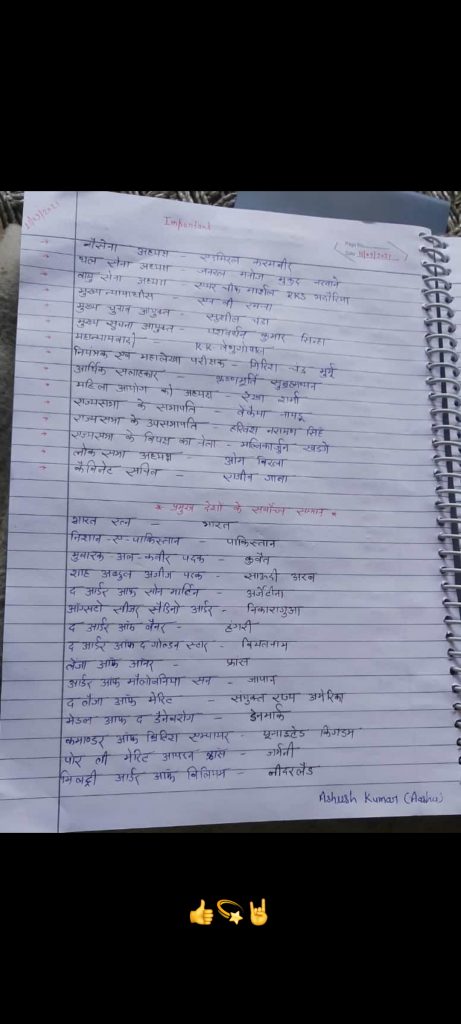 Important
नौसेना अध्यक्ष - एडमिरल करमबीर
थल सेना अध्यक्ष - जनरल मनोज मुकुंद नरवाने
वायु सेना अध्यक्ष - एयर चीफ मार्शल RKS भदौरिया
मुख्य न्यायाधीश - एन वी रमना
मुख्य चुनाव आयुक्त - सुशील चंद्रा
मुख्य सूचना आयुक्त - यशवर्धन कुमार सिन्हा
महान्यायवादी - KK वेणुगोपाल
नियंत्रक एवं महालेखा परीक्षक - गिरिश चंद्र मुर्मू
आर्थिक सलाहकार - कृष्णमूर्ति सुब्रह्मण्यम
महिला आयोग की अध्यक्ष - रेखा शर्मा
राज्यसभा के सभापति - वेंकैया नायडू
राज्यसभा के उपसभापति - हरिवंश नारायण सिंह
राज्यसभा के विपक्ष का नेता - मल्लिकार्जुन खड़गे
लोक सभा अध्यक्ष - ओम बिरला
कैबिनेट सचिव - राजीव गाबा
* प्रमुख देशों के सर्वोच्च सम्मान *
भारत रत्न - भारत
निशान-ए-पाकिस्तान - पाकिस्तान
मुबारक अल-कबीर पदक - कुवैत
शाह अब्दुल अजीज पदक - साऊदी अरब
द आर्डर आफ सेन मार्टिन - अर्जेंटीना
ऑगस्टो सीजर सैंडिनो आर्डर - निकारागुआ
द आर्डर ऑफ बैनर - हंगरी
द आर्डर ऑफ द गोल्डन स्टार - वियतनाम
लेजा ऑफ ऑनर - फ्रांस
आर्डर आफ पौलोवनिया सन - जापान
द लैजा ऑफ मेरिट - संयुक्त राज्य अमेरिका
मेडल आफ द डैनेब्रोग - डेनमार्क
कमाण्डर ऑफ ब्रिटिश एम्पायर - यूनाइटेड किंगडम
पोर ली मेरिट आपरन क्लास - जर्मनी
मिलट्री आर्डर आफ विलियम - नीदरलैंड
Ashush Kumar (Aashu)